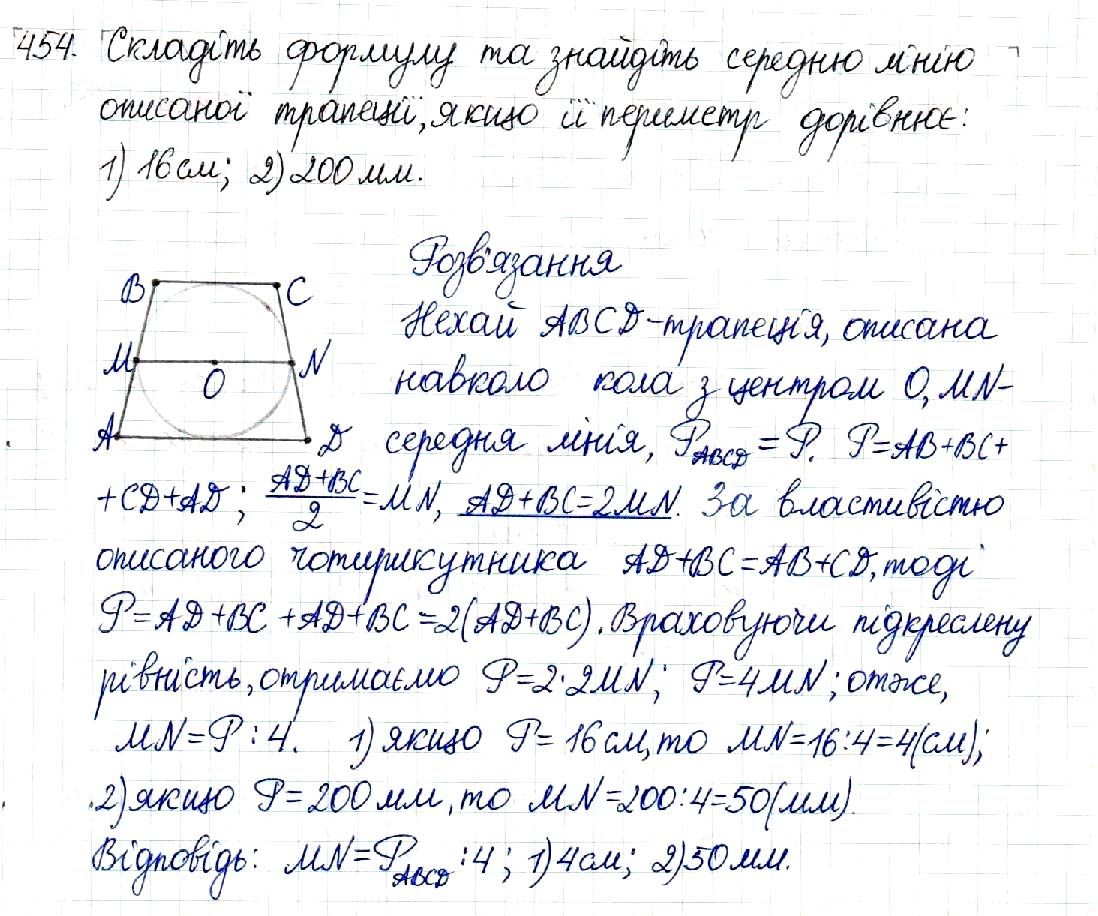 454. Складіть формулу та знайдіть середню лінію
описаної трапеції, якщо її периметр дорівнює:
1) 16 см; 2) 200 мм.
Розв'язання
B
C
M
N
O
A
D
Нехай ABCD-трапеція, описана
навколо кола з центром O, MN-
середня лінія, P_ABCD = P. P=AB+BC+
+CD+AD; (AD+BC)/2 = MN, AD+BC=2MN. За властивістю
описаного чотирикутника AD+BC=AB+CD, тоді
P=AD+BC+AD+BC=2(AD+BC). Враховуючи підкреслену
рівність, отримаємо P=2·2MN; P=4MN; отже,
MN=P:4. 1) якщо P=16см, то MN=16:4=4(см);
2) якщо P=200мм, то MN=200:4=50(мм).
Відповідь: MN=P_ABCD:4; 1) 4см; 2) 50мм.